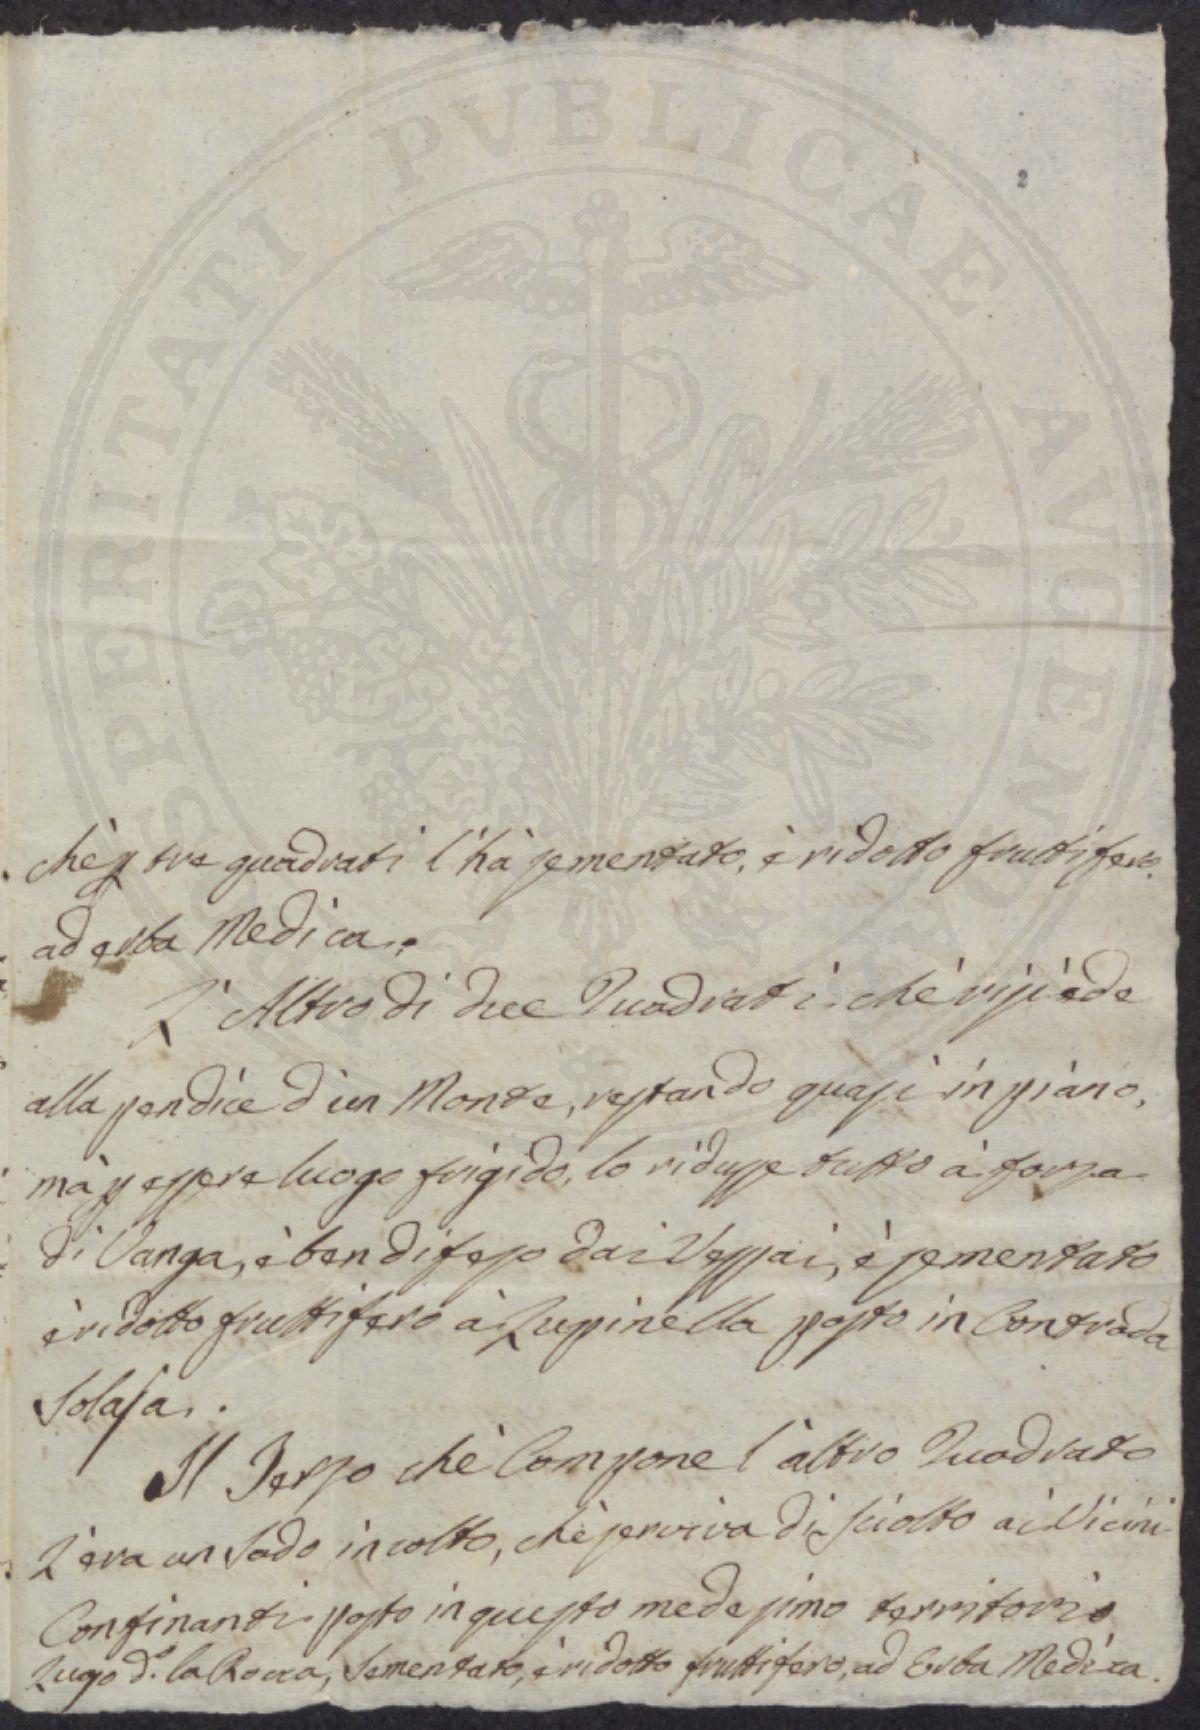 PROSPERITATI PVBLICAE AVGENDAE
2
chè p tre quadrati l'hà sementato, è ridotto fruttifero
ad erba Medica.
L'Altro di due Quadrati chè risiede
alla pendice d'un Monte, restando quasi in piano,
mà p essere luogo frigido, lo ridusse tutto à forza
di Vanga, è ben difeso dai Vessai, è sementato
è ridotto fruttifero à Lupinella posto in Contrada
Solasa.
Il Terzo chè Compone l'altro Quadrato
L'era un Sodo incolto, chè serviva di sciolto ai Vicini
Confinanti posto in questo medesimo territorio
Lugo d.º la Rocca, Sementato, è ridotto fruttifero, ad Erba Medica.